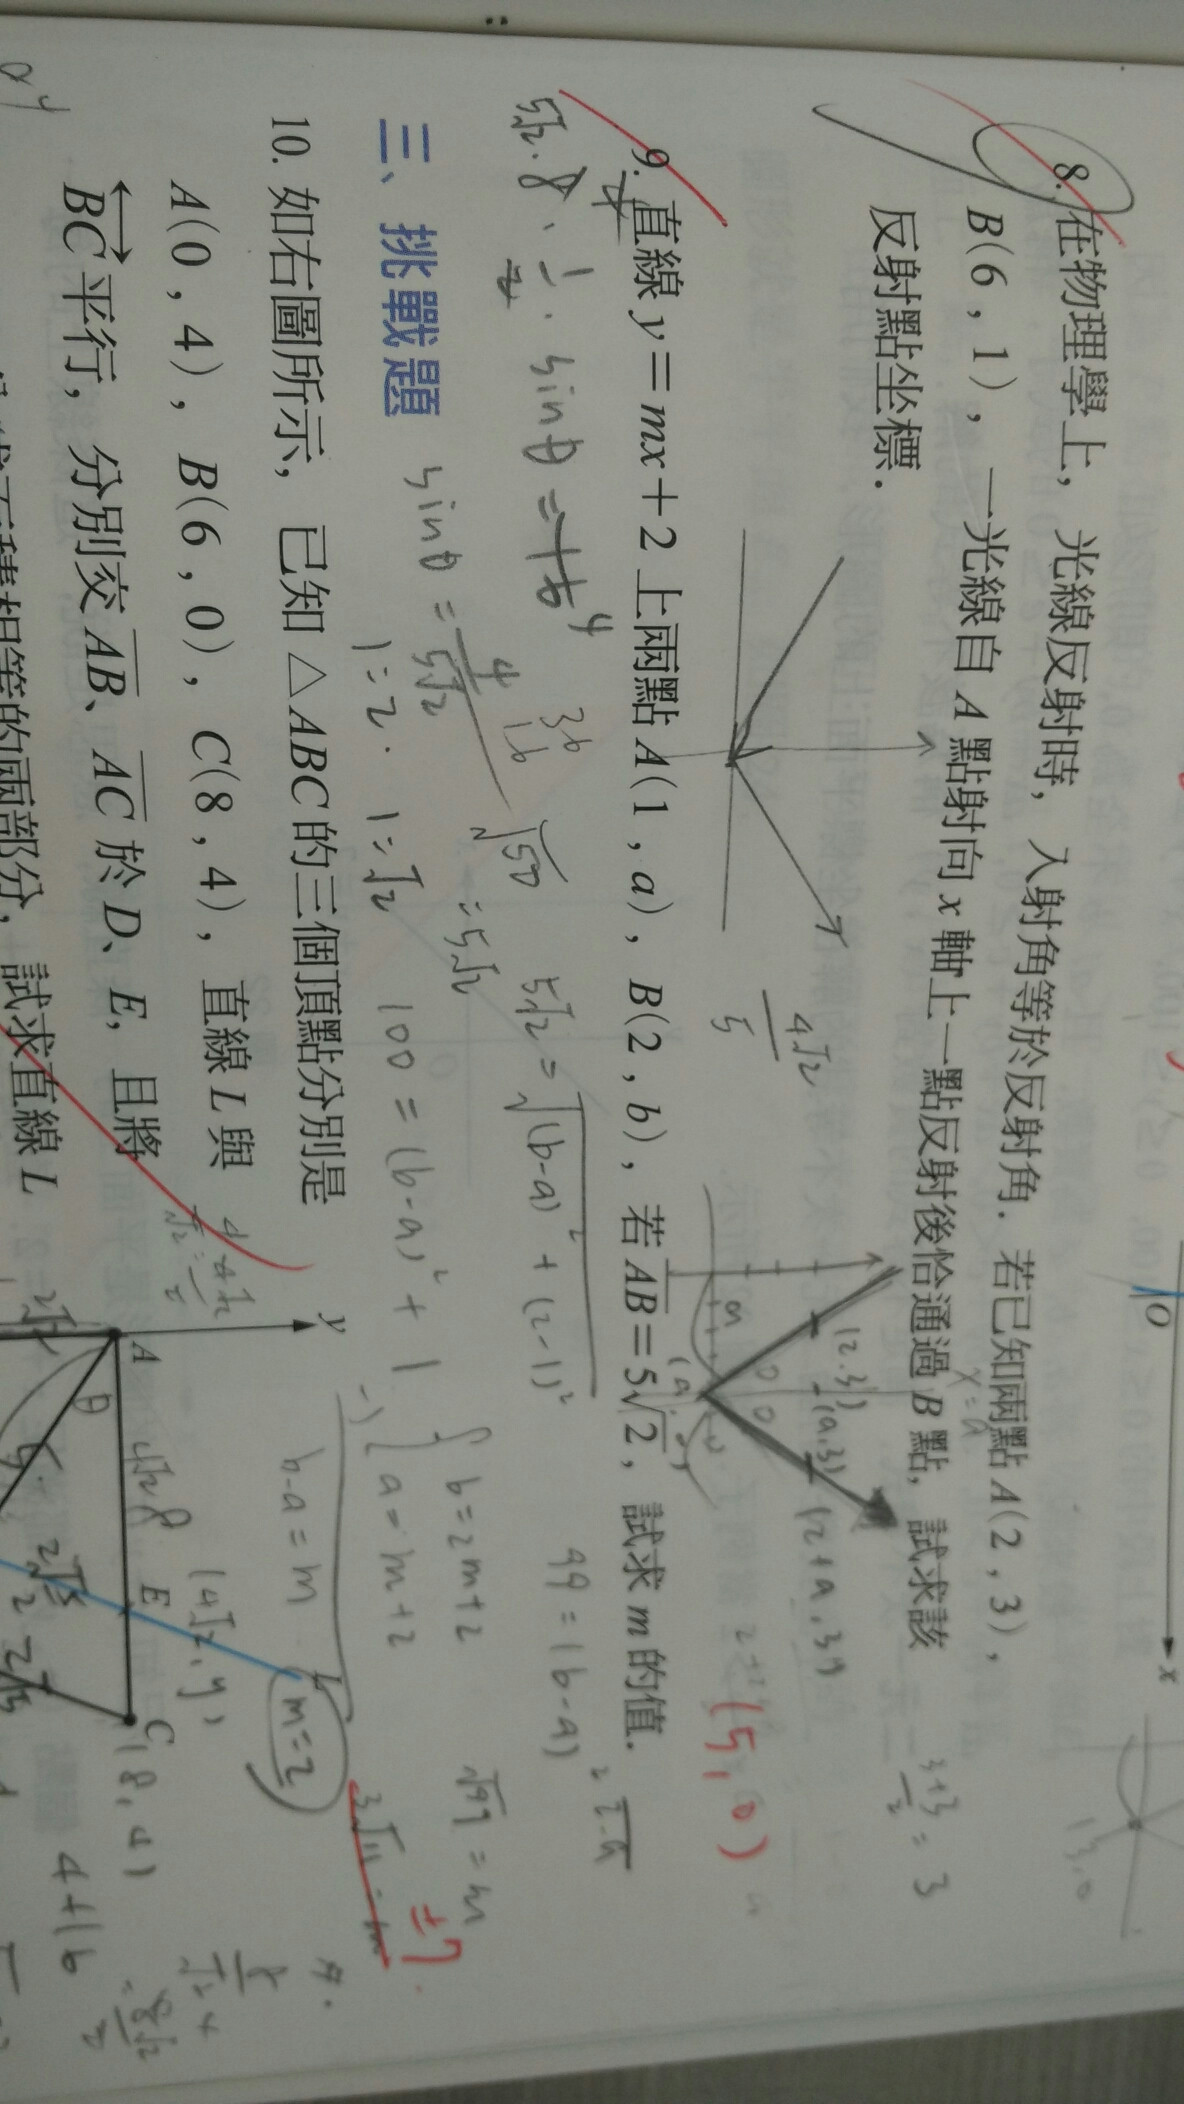 8. 在物理學上，光線反射時，入射角等於反射角．若已知兩點 A(2 , 3)，
B(6 , 1)，一光線自 A 點射向 x 軸上一點反射後恰通過 B 點，試求該
反射點坐標．
x=a
(2.3)
(a,3)
3+3/2 = 3
(5,0)
4√2/5
O
x
9. 直線 y＝mx＋2 上兩點 A(1 , a)，B(2 , b)，若 AB＝5√2，試求 m 的值．
5√2 = √(b-a)²+(2-1)²
√50
=5√2
100 = (b-a)² + 1
99 = (b-a)²
b=2m+2
a=m+2
b-a=m
√99 = m
3√11 = m
±7
5√2·8·1/2·sinθ=16
4
三、挑戰題
sinθ = 4/5√2
1:2. 1:√2
m=2
10. 如右圖所示，已知 △ABC 的三個頂點分別是
A(0 , 4)，B(6 , 0)，C(8 , 4)，直線 L 與
BC 平行，分別交 AB、AC 於 D、E，且將
面積相等的兩部分，試求直線 L
y
A
θ
4√2
E
C
(8,4)
L
(4√2,y)
4+16